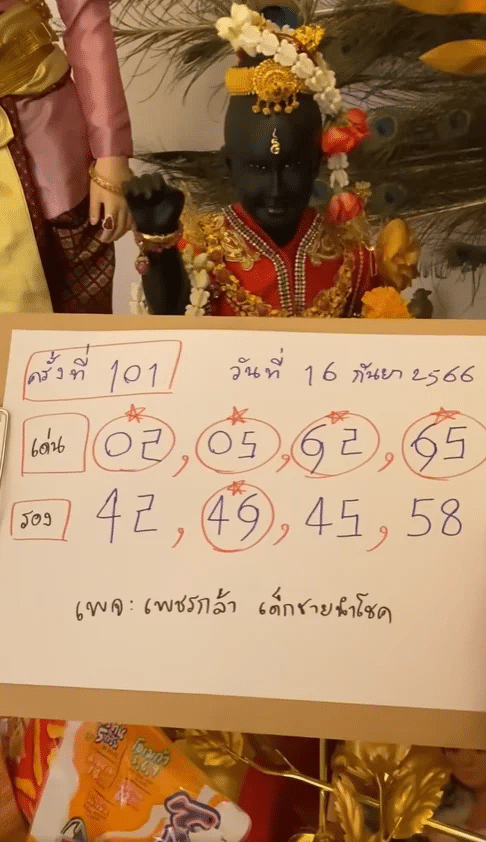 ครั้งที่ 101 วันที่ 16 กันยา 2566
เด่น 02, 05, 62, 65
รอง 42, 49, 45, 58
เพจ: เพชรกล้า เด็กชายนำโชค